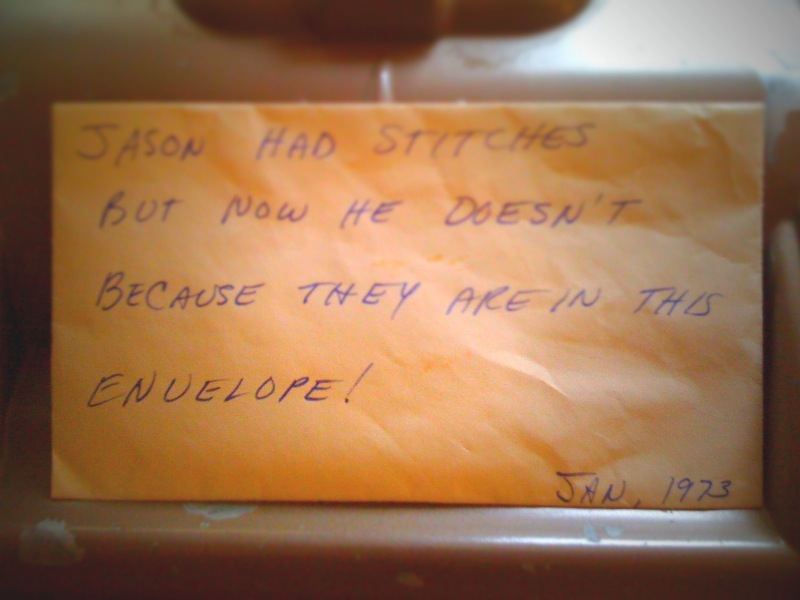 JASON HAD STITCHES
BUT NOW HE DOESN'T
BECAUSE THEY ARE IN THIS
ENVELOPE!
JAN, 1973